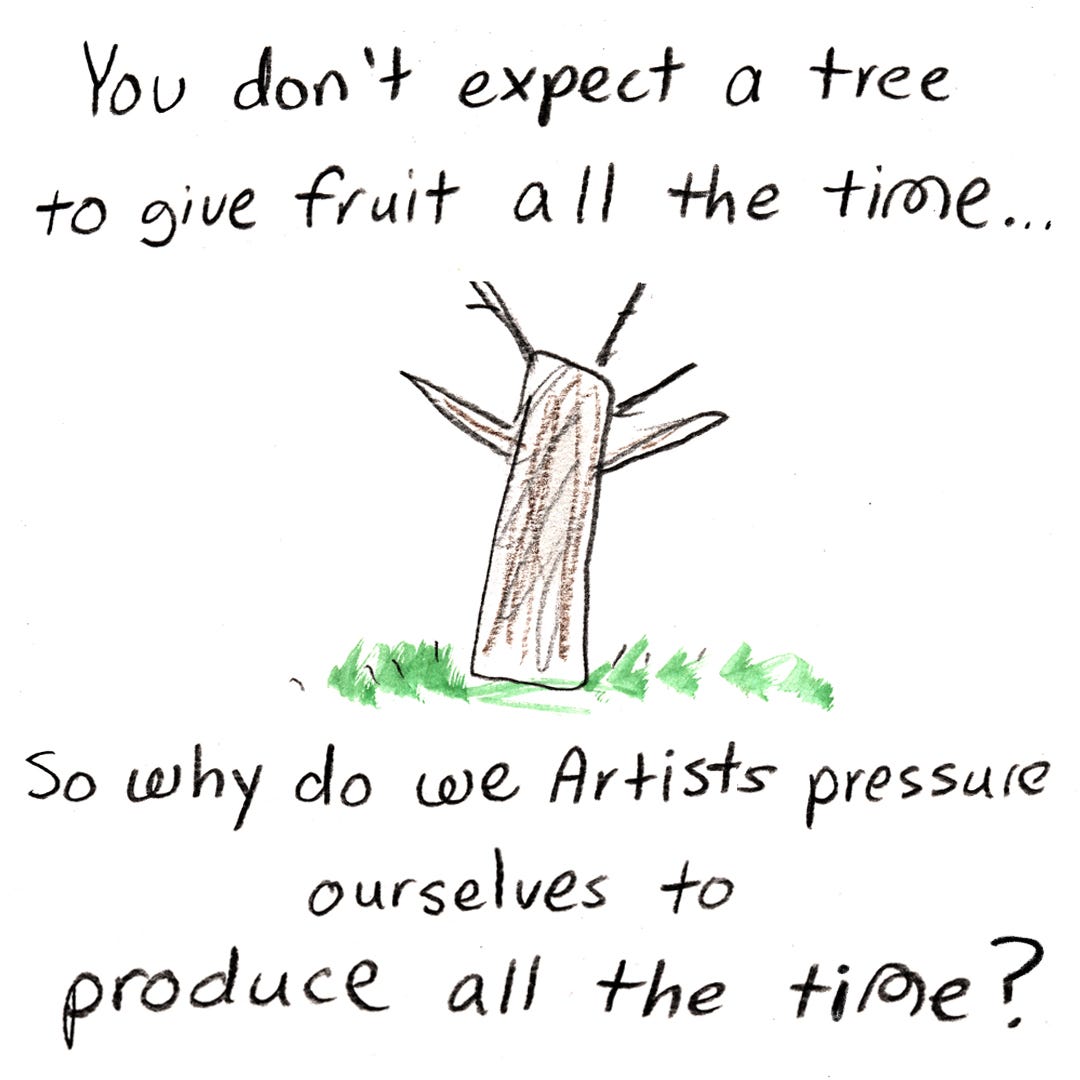 You don't expect a tree
to give fruit all the time...
So why do we Artists pressure
ourselves to
produce all the time?